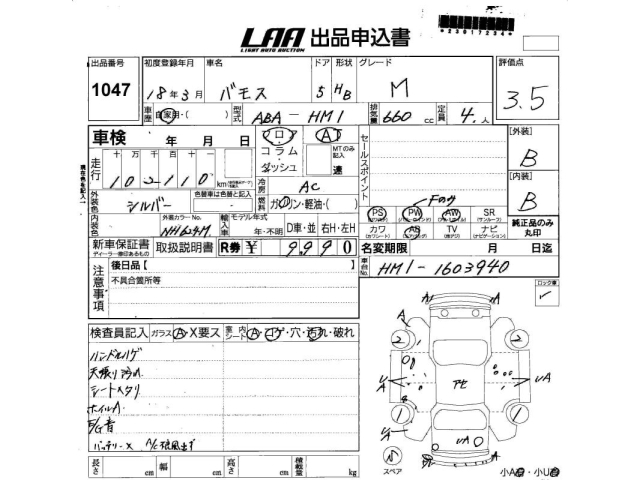 LAA 出品申込書
LIGHT AUTO AUCTION
*23017234*
出品番号 初度登録年月 車名 ドア 形状 グレード 評価点
1047 18年3月 バモス 5 HB M 3.5
車歴 自家用・( ) 型式 ABA-HM1 排気量 660 cc 定員 4.人
車検 年 月 日 フロア コラム ダッシュ A MTのみ記入 速
セールスポイント
[外装] B
[内装] B
走行 十万千百十 102110 km
冷房 AC
燃料 ガソリン・軽油・( )
外装色 シルバー 色替車は色替と記入
内装色 外装カラーNo. NH624M 輸入車 モデル年式 年・不明 D車・並 右H・左H
Fのみ
PS PW AW SR
カワ AB TV ナビ
純正品のみ丸印
新車保証書 取扱説明書 R券 ¥ 9990
ディーラー捺印あるもの
名変期限 月 日迄
現在色を記入
注意事項 後日品【 】
不具合箇所等
車台No. HM1-1603940
ロック車
検査員記入 ガラス A・X要ス 室内シート A・コゲ・穴・汚れ・破れ
ハンドルハゲ
天張り汚れ
シートスタリ
ホイルA
E/G音
バッテリーX A/C
A
2 2
UA A UA
1 1
UA A
スペア
長さ cm 幅 cm 高さ cm 積載量 kg
小A・小U